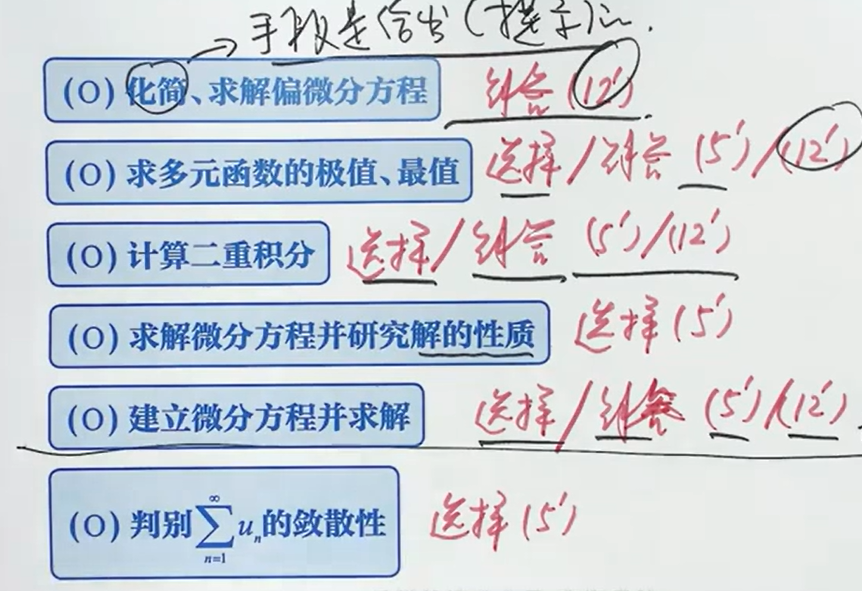 手段是给出(提示)的.
(O) 化简、求解偏微分方程 综合 (12')
(O) 求多元函数的极值、最值 选择/综合 (5')/(12')
(O) 计算二重积分 选择/综合 (5')/(12')
(O) 求解微分方程并研究解的性质 选择 (5')
(O) 建立微分方程并求解 选择/综合 (5')/(12')
(O) 判别∑_{n=1}^{∞} u_n的敛散性 选择 (5')